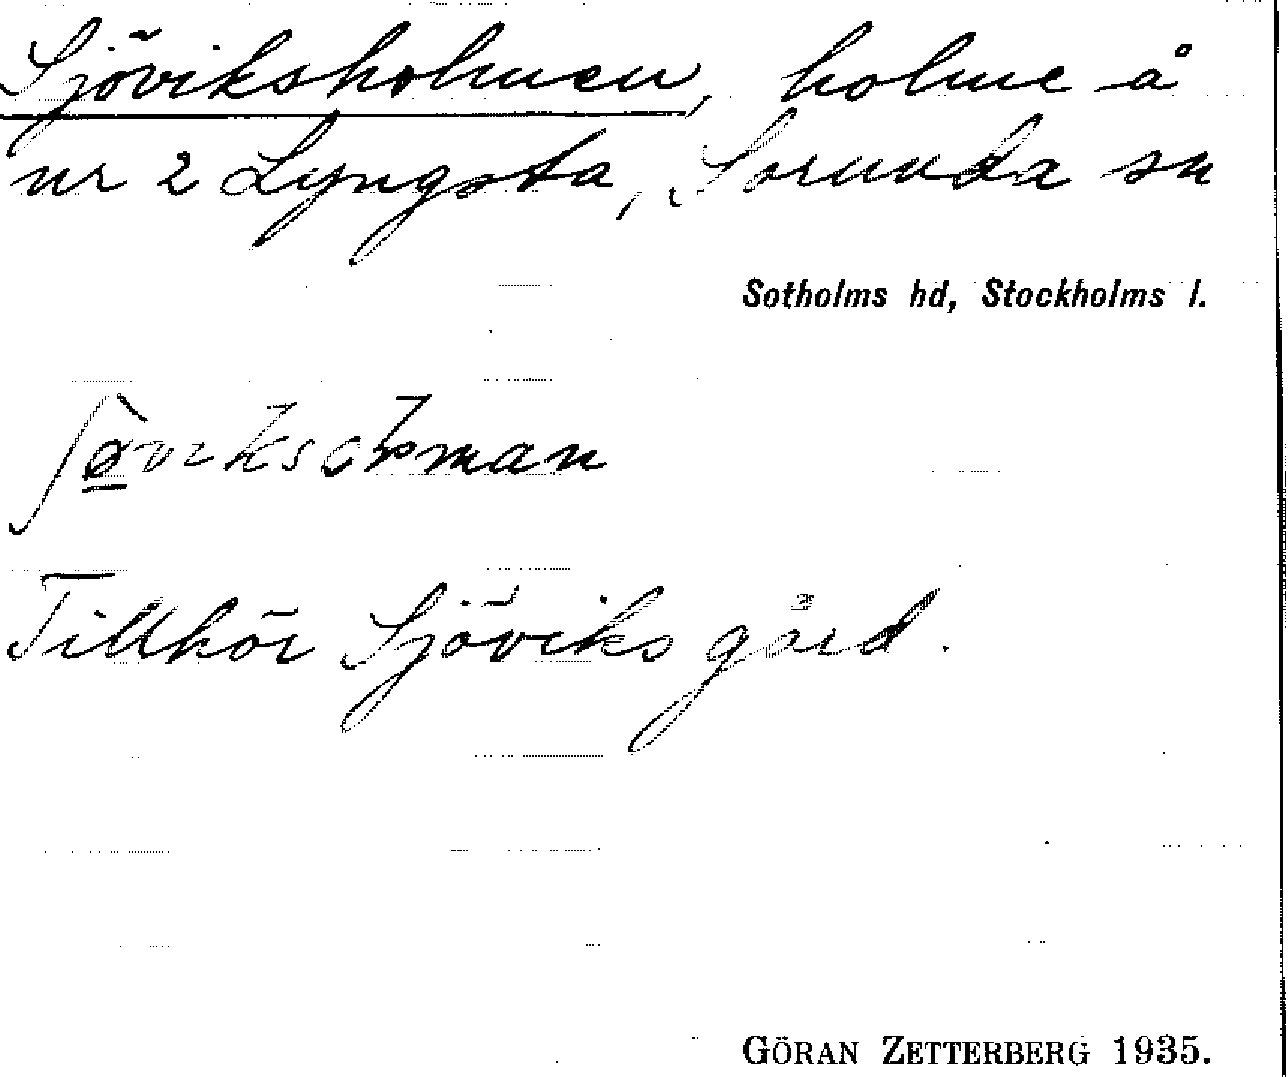 Sjöviksholmen, holme å
nr 2 Lyngsta, Sorunda sn
Sotholms hd, Stockholms l.
Tillhör Sjöviks gård.
GÖRAN ZETTERBERG 1935.